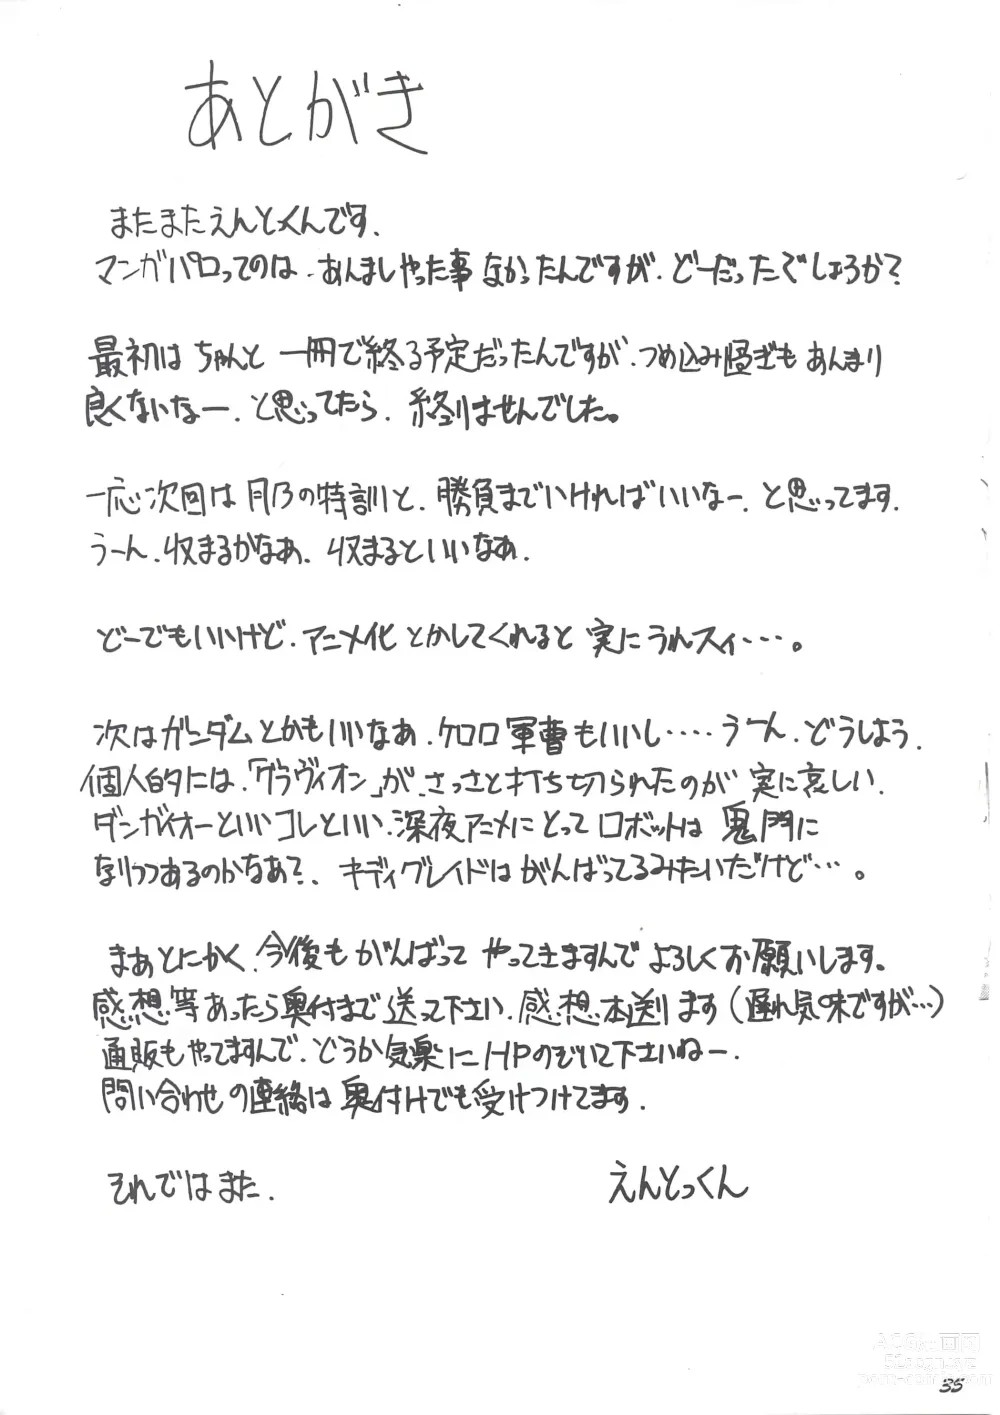 あとがき
またまたえんとくんです.
マンガパロってのは.あんましやった事なかったんですが.どーだったでしょうか?
最初はちゃんと一冊で終る予定だったんですが.つめ込み過ぎもあんまり
良くないなー.と思ってたら.終りませんでした。
一応次回は月乃の特訓と.勝負までいければいいなー.と思ってます.
うーん.収まるかなあ、収まるといいなあ.
どーでもいいけど.アニメ化とかしてくれると実にうれスィ・・・。
次はガンダムとかもいいなあ.ケロロ軍曹もいいし・・・・うーん.どうしよう.
個人的には.「グラヴィオン」が.さっさと打ち切られたのが実に哀しい.
ダンガイオーといいコレといい.深夜アニメにとってロボットは鬼門に
なりつつあるのかなあ?.キディグレイドはがんばってるみたいだけど・・・。
まあとにかく.今後もがんばってやってきますんでよろしくお願いします。
感想等あったら奥付まで送って下さい.感想本送ります(遅れ気味ですが…)
通販もやてますんで.どうか気楽にHPのぞいて下さいねー.
問い合わせの連絡は奥付けでも受けつけてます.
それではまた.
えんとっくん
ACGK•画阁
35